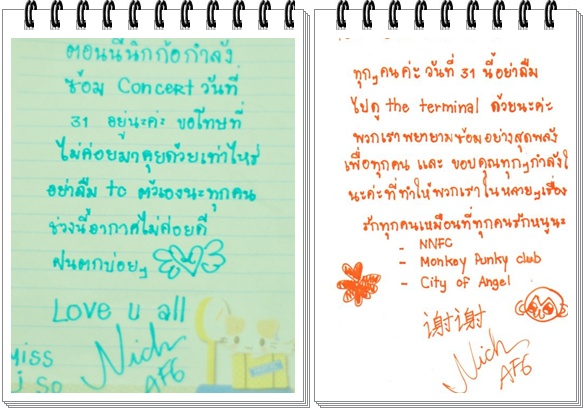 ตอนนี้นิกก้อกำลัง
ซ้อม Concert วันที่
31 อยู่นะค่ะ ขอโทษที่
ไม่ค่อยมาคุยด้วยเท่าไหร่
อย่าลืม tc ตัวเองนะทุกคน
ช่วงนี้อากาศไม่ค่อยดี
ฝนตกบ่อยๆ
Love u all
Miss
Nich
AF6
ทุกๆคนค่ะ วันที่ 31 นี้อย่าลืม
ไปดู the terminal ด้วยนะค่ะ
พวกเราพยายามซ้อมอย่างสุดพลัง
เพื่อทุกคน และ ขอบคุณทุกๆกำลังใ
นะค่ะที่ทำให้พวกเราในหลายๆเรื่อง
รักทุกคนเหมือนที่ทุกคนรักหนูนะ
- NNFC
- Monkey Punky club
- City of Angel
谢谢
Nich
AF6